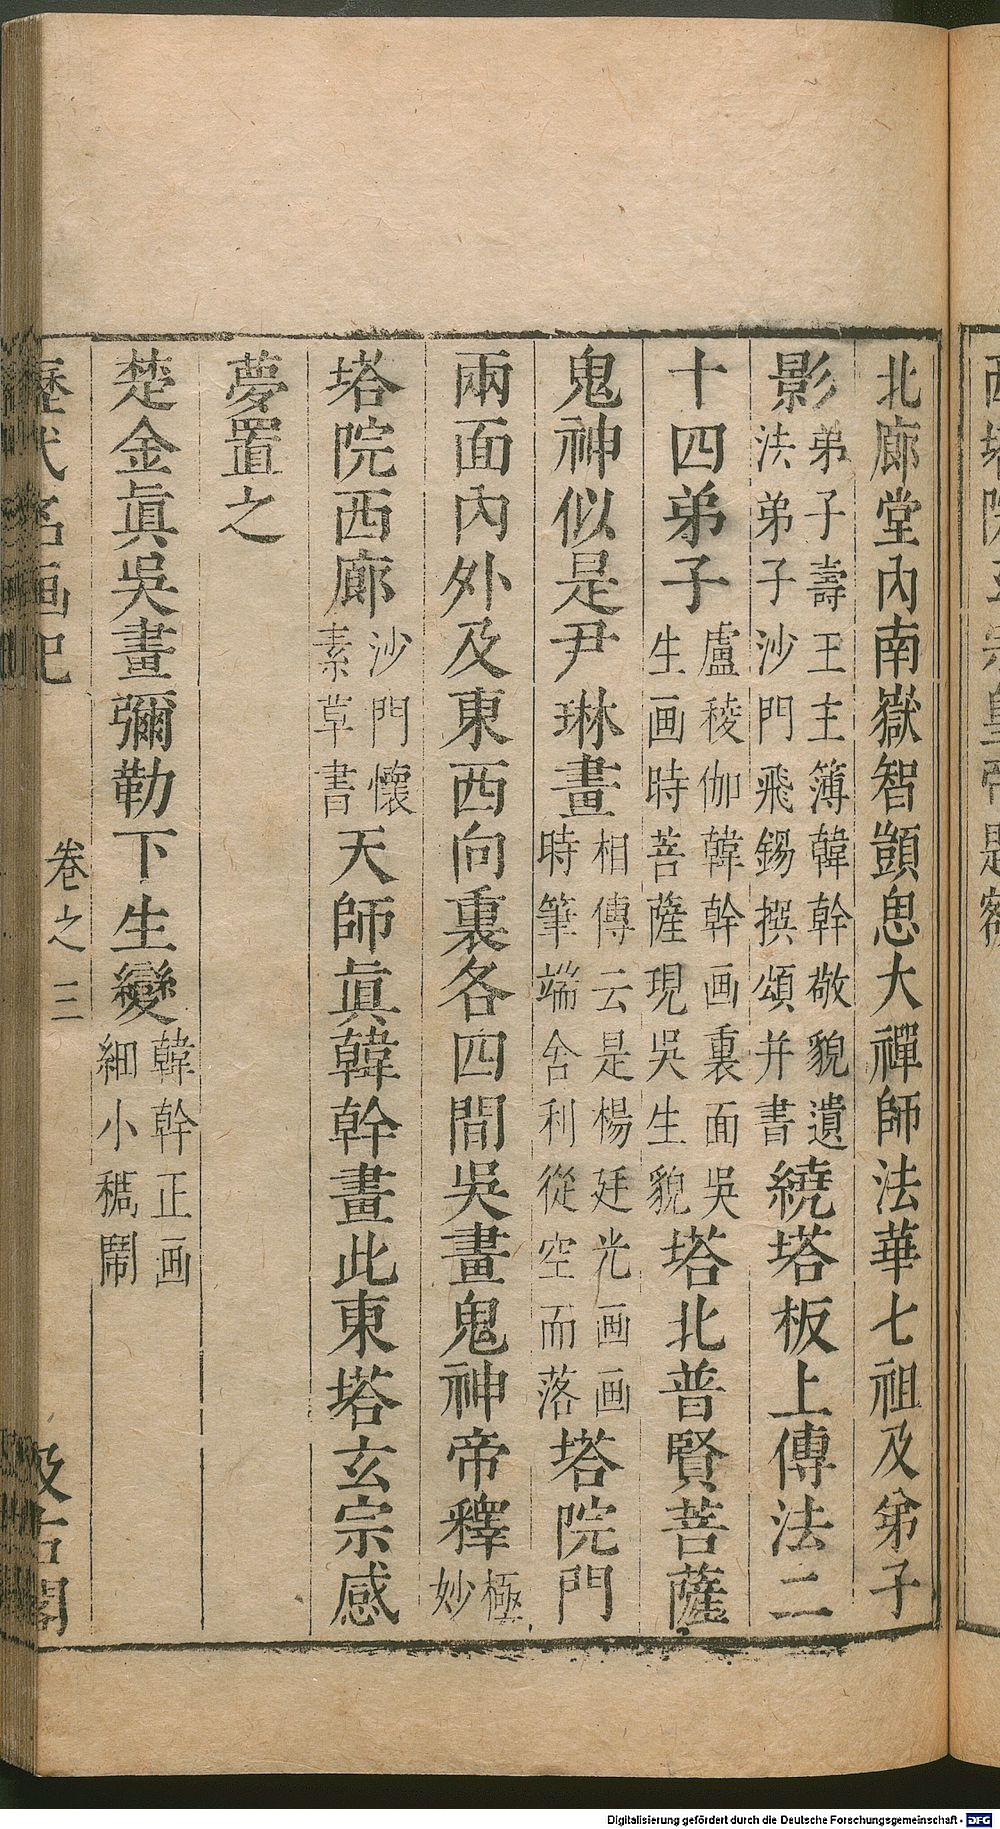 北廊堂內南嶽智顗思大禪師法華七祖及弟子
影弟子壽王主簿韓幹敬貌遺法弟子沙門飛錫撰頌并書繞塔板上傳法二
十四弟子盧稜伽韓幹画裏面吳生画時菩薩現吳生貌塔北普賢菩薩
鬼神似是尹琳畫相傳云是楊廷光画画時筆端舍利從空而落塔院門
兩面內外及東西向裏各四間吳畫鬼神帝釋極妙
塔院西廊沙門懷素草書天師眞韓幹畫此東塔玄宗感
夢置之
楚金眞吳畫彌勒下生變韓幹正画細小稠鬧
歷代名画记
卷之三
汲古閣
Digitalisierung gefördert durch die Deutsche Forschungsgemeinschaft - DFG